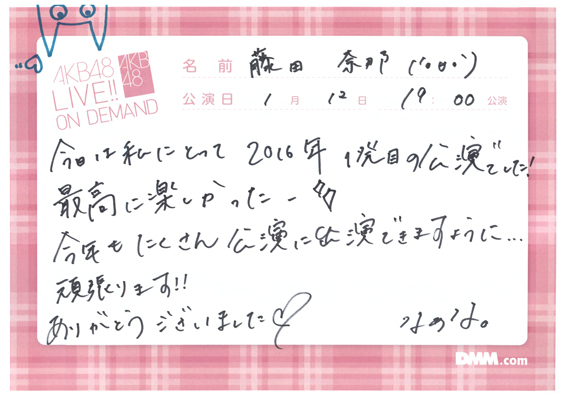 AKB48
LIVE!!
ON DEMAND
AKB
48
名前 藤田 奈那
公演日 1月 12日 19:00 公演
今日は私にとって 2016年 1発目の公演でした!
最高に楽しかったー
今年もたくさん公演に出演できますように...
頑張ります!!
ありがとうございました♡
なのな。
DMM.com